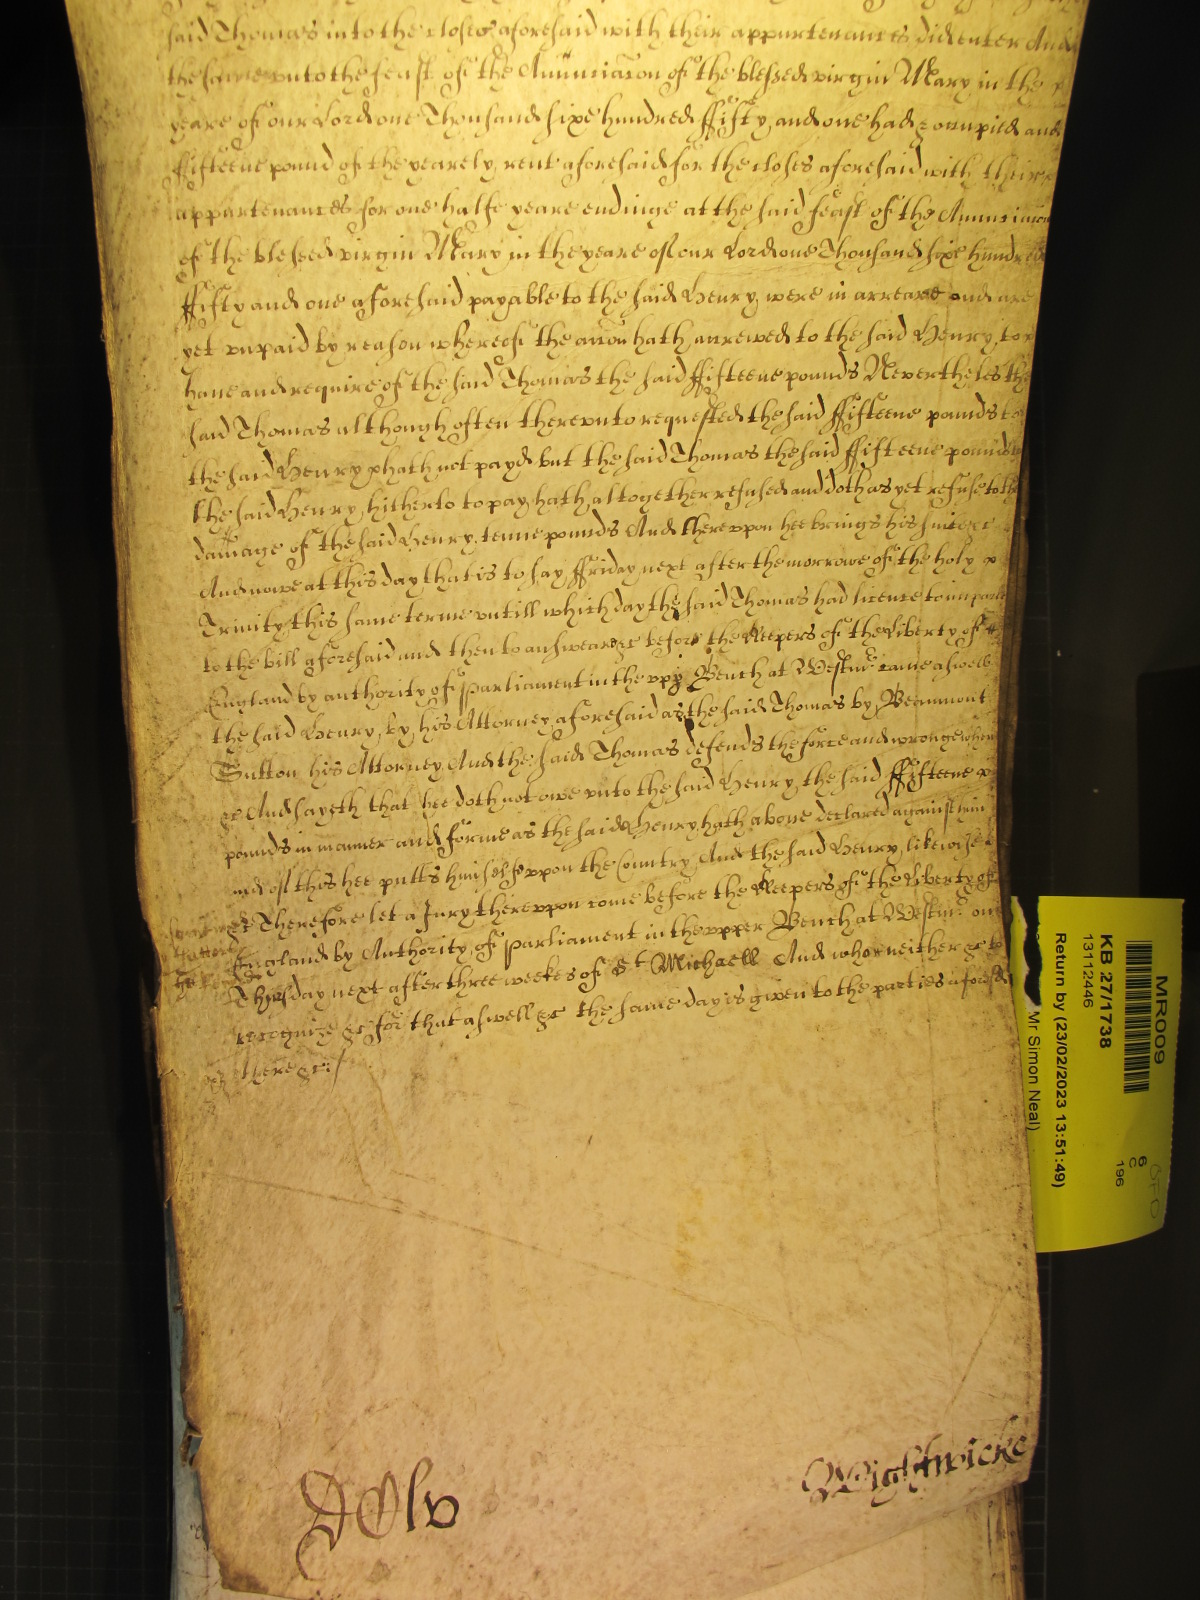 said Thomas into the closes aforesaid with their appurtenances did enter And
the same vnto the feast of the Annunciacon of the blessed virgin Mary in the
yeare of our Lord one Thousand sixe hundred ffifty and one had & occupied and
ffifteene pound of the yearely rent aforesaid for the closes aforesaid with their
appurtenances for one halfe yeare endinge at the said feast of the Annunciacon
of the blessed virgin Mary in the yeare of our Lord one Thousand sixe hundred
ffifty and one aforesaid payable to the said Henry were in arreare and are
yet vnpaid by reason whereof the accon hath accrewed to the said Henry to
haue and require of the said Thomas the said ffifteene pounds Neverthelesse the
said Thomas although often therevnto requested the said ffifteene pounds to
the said Henry hath not payd but the said Thomas the said ffifteene pounds
the said Henry hitherto to pay hath altogether refused and doth as yet refuse to the
damage of the said Henry tenne pounds And therevpon hee brings his suite &c
And nowe at this day that is to say ffriday next after the morrowe of the holy
Trinity this same terme vntill which day the said Thomas had licence to imparle
to the bill aforesaid and then to answeare &c before the Keepers of the Liberty of
England by authority of Parliament in the vpp Bench at Westmr came aswell
the said Henry by his Attorney aforesaid as the said Thomas by Beaumont
Sutton his Attorney And the said Thomas defends the force and wronge when
&c And sayeth that hee doth not owe vnto the said Henry the said ffifteene
pounds in manner and forme as the said Henry hath aboue declared against him
and of this hee putts himselfe vpon the Country And the said Henry likewise
&c Therefore let a Jury therevpon come before the Keepers of the Liberty of
England by Authority of Parliament in the vpper Bench at Westmr on
Thursday next after three weekes of St Michaell And who neither &c to
recognize &c for that aswell &c the same day is given to the parties aforesaid
there &c
Rolv
Wightwicke
MR009
KB 27/1738
13112446
Return by (23/02/2023 13:51:49)
Mr Simon Neal)
6
C
196